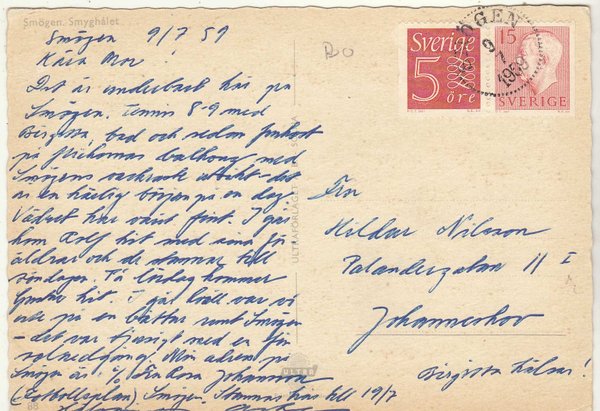 Smögen. Smyghålet
Smögen 9/7 59
Kära Mor!
Det är underbart här på
Smögen. Tennis 8-9 med
Birgitta, bad och sedan frukost
på balkong med
Smögens vackraste utsikt - det
är en härlig början på en dag.
Vädret har varit fint. I går
kom Rolf hit med sina för
äldrar och de stannar till
söndagen. På lördag kommer
hit. I går kväll var vi
ute på en båttur runt Smögen
- det var tjusigt med en fin
solnedgång. Min adress på
Smögen är c/o Johansson
(Fotbollsplan) Smögen. Stannar här till 19/7
SMÖGEN
9 7
1959
Sverige
5
öre
15
SVERIGE
ULTRAFÖRLAGET
ULTRA
Fru
Hildur Nilsson
Palandergatan 11 I
Johanneshov
Birgitta hälsar!